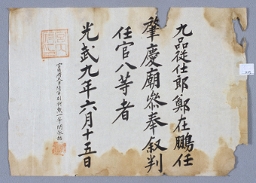 九品從仕郎鄭在鵬任
肇慶廟參奉叙判
任官八等者
光武九年六月十五日